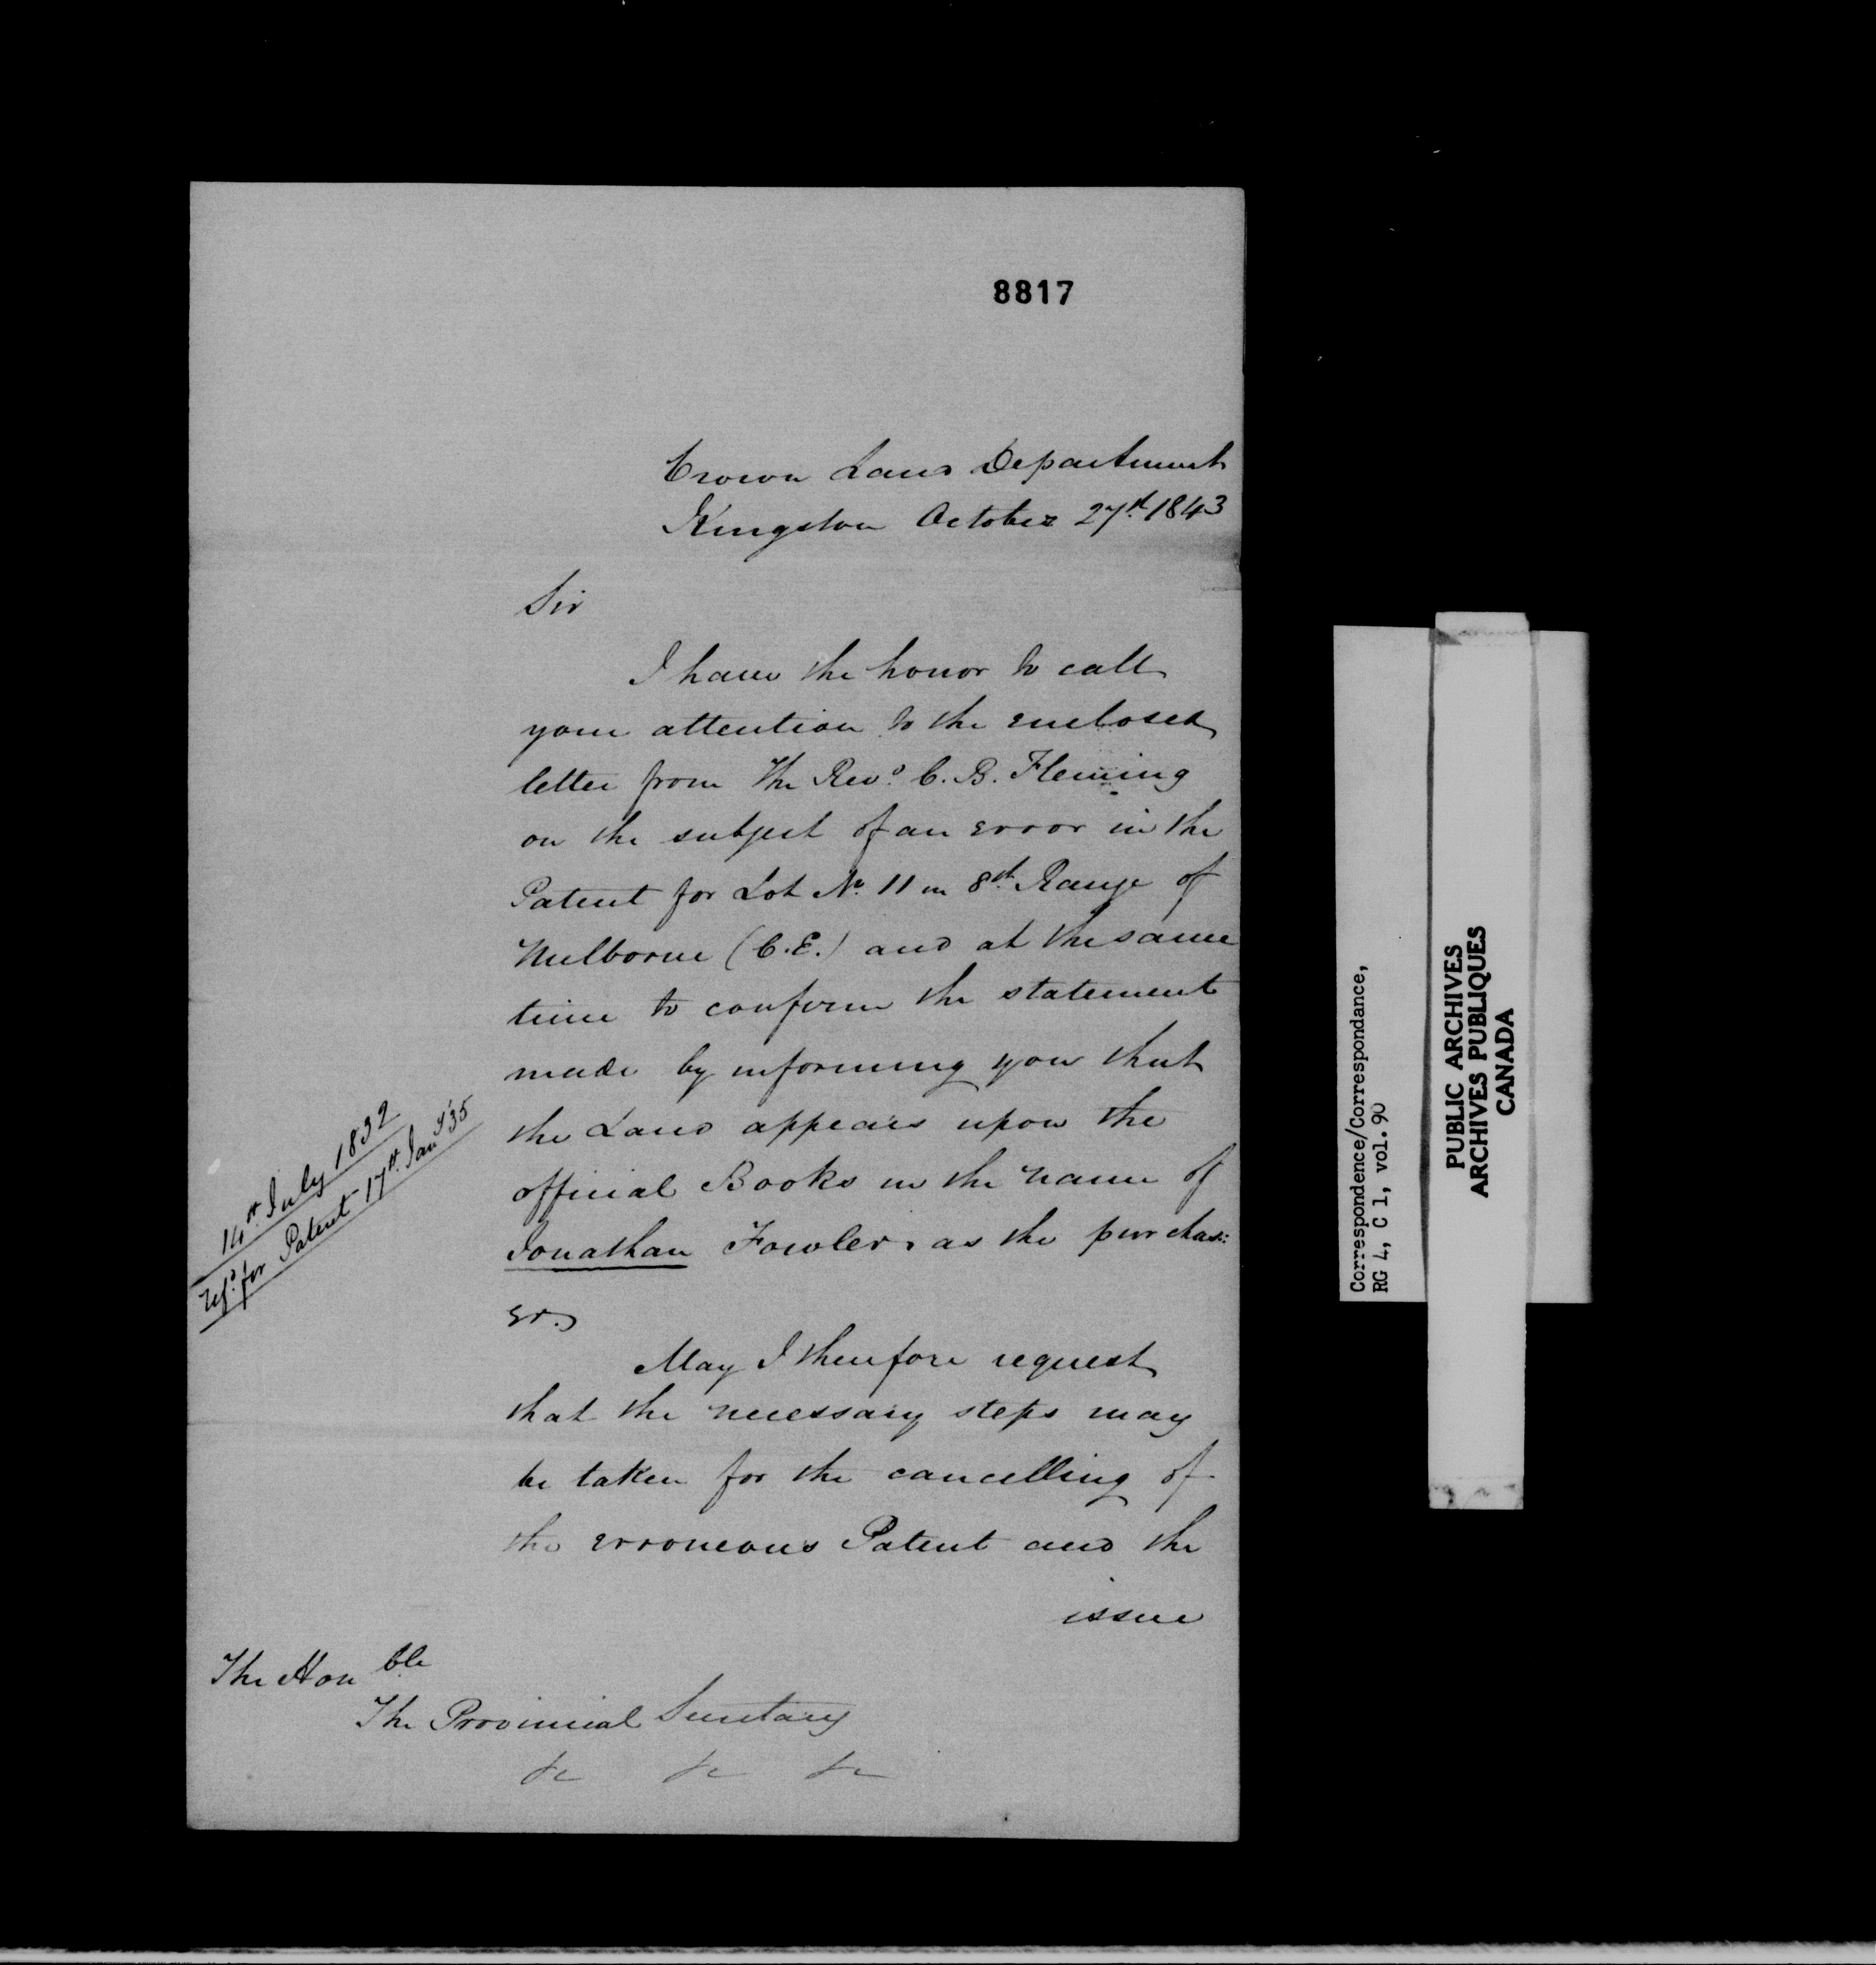 8817
Crown Land Department
Kingston October 27th 1843
Sir
I have the honor to call
your attention to the enclosed
letter from The Revd C. B. Fleming
on the subject of an error in the
Patent for Lot No. 11 in 8th Range of
Melborne (C.E.) and at the same
time to confirm the statement
made by informing you that
the Land appears upon the
official Books in the name of
Jonathan Fowler, as the purchas:
er.
14th July 1832
Refd for Patent 17th Jany '35
May I therefore request
that the necessary steps may
be taken for the cancelling of
the erroneous Patent and the
issue
The Honble
The Provincial Secretary
&c &c &c
Correspondence/Correspondance,
RG 4, C 1, vol.90
PUBLIC ARCHIVES
ARCHIVES PUBLIQUES
CANADA